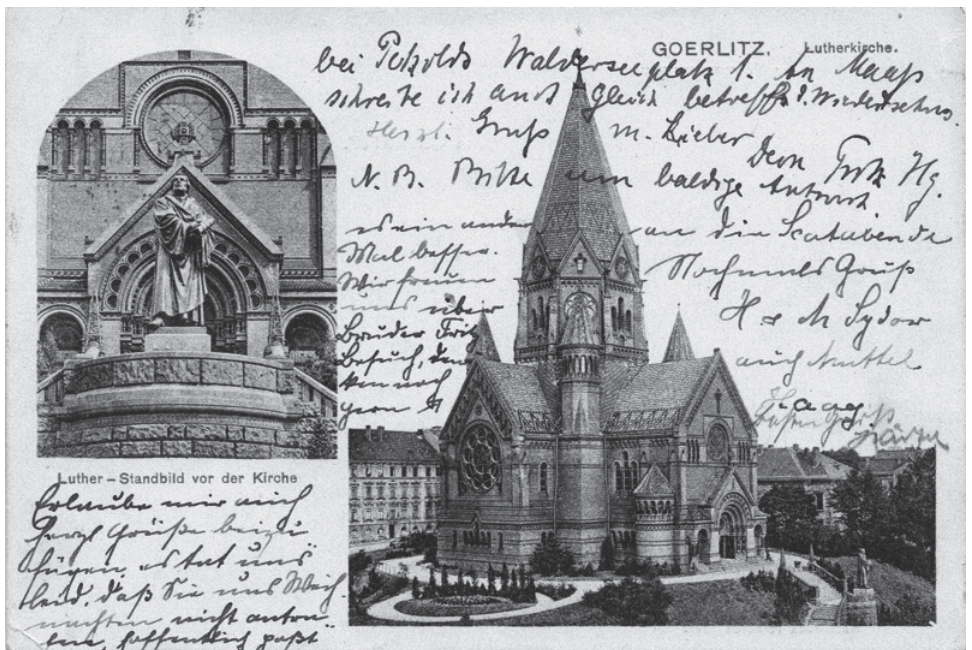 GOERLITZ. Lutherkirche.
bei Petzolds Walderseeplatz 1. An Maaß
schreibe ich auch gleich betreffs Wiedersehns.
Herzl. Gruß m. Lieber
Dein Fritz
N. B. Bitte um baldige Antwort
es ein ander
Mal besser.
Wir freuen
uns über
Bruder Fritz
Besuch, den
ken noch
gern
an die
Nochmals Gruß
H u M Sydow
auch Mutter
Luther – Standbild vor der Kirche
Erlaube mir auch
herzl Grüße beizu
fügen es tat uns
leid, daß Sie uns Weih
nachten nicht antra
fen, hoffentlich paßt